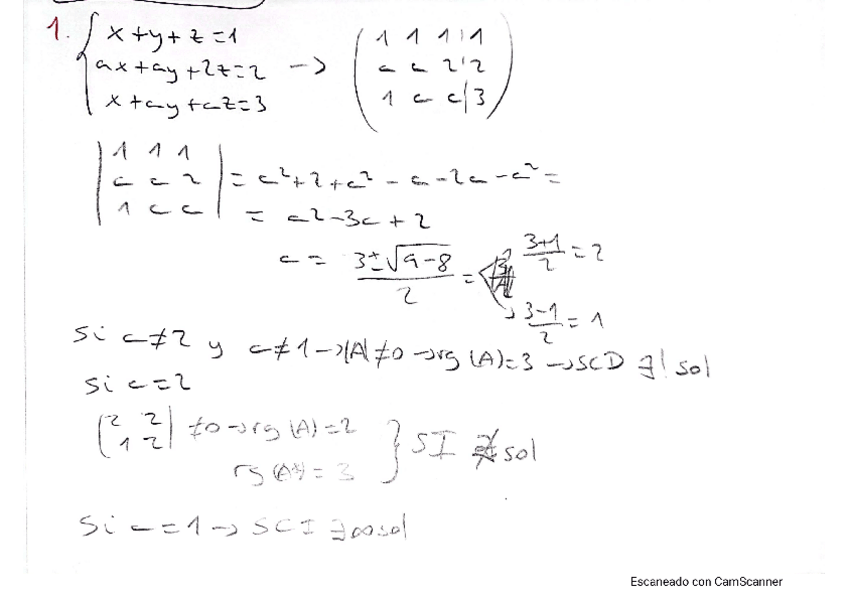 1. { x + y + z = 1
ax + ay + 2z = 2 → ( 1 1 1 | 1
a a 2 | 2
x + ay + az = 3 1 a a | 3 )
| 1 1 1 |
| a a 2 | = a² + 2 + a² - a - 2a - a² =
| 1 a a | = a² - 3a + 2
a = 3 ± √9-8 / 2 = 3+1 / 2 = 2
3-1 / 2 = 1
Si a ≠ 2 y a ≠ 1 → |A| ≠ 0 → rg (A) = 3 → SCD ∃! sol
Si a = 2
| 2 2 |
| 1 2 | ≠ 0 → rg (A) = 2 } SI ∄ sol
rg (A*) = 3
Si a = 1 → SCI ∃ ∞ sol
Escaneado con CamScanner